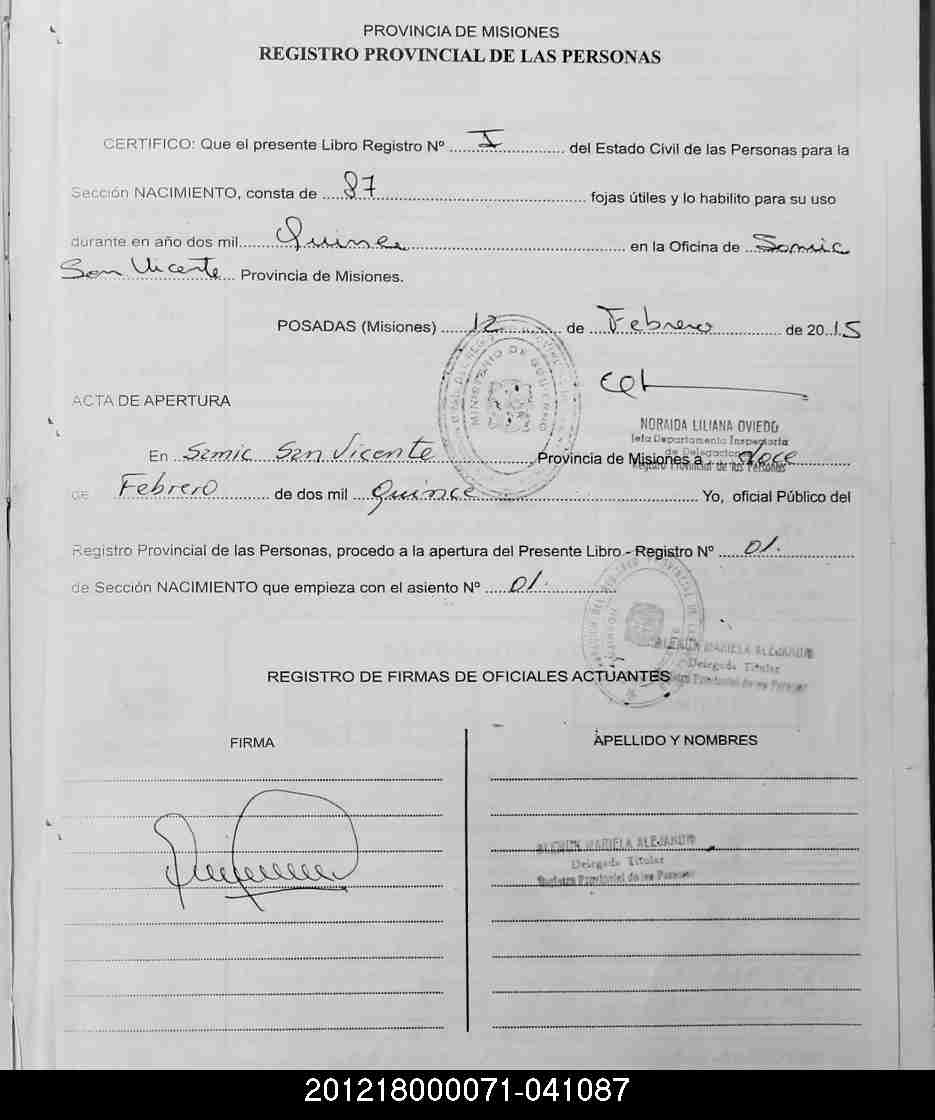 PROVINCIA DE MISIONES
REGISTRO PROVINCIAL DE LAS PERSONAS
CERTIFICO: Que el presente Libro Registro Nº I del Estado Civil de las Personas para la
Sección NACIMIENTO, consta de 87 fojas útiles y lo habilito para su uso
durante en año dos mil Quince en la Oficina de Samic
San Vicente Provincia de Misiones.
POSADAS (Misiones) 12 de Febrero de 2015
MINISTERIO DE GOBIERNO
NORAIDA LILIANA OVIEDO
Jefa Departamento Inspectoría
de Delegaciones
Registro Provincial de las Personas
ACTA DE APERTURA
En Samic San Vicente Provincia de Misiones a doce
de Febrero de dos mil Quince Yo, oficial Público del
Registro Provincial de las Personas, procedo a la apertura del Presente Libro - Registro Nº 01.
de Sección NACIMIENTO que empieza con el asiento Nº 01.
MARIELA ALEJANDR
Delegada Titular
Registro Provincial de las Personas
REGISTRO DE FIRMAS DE OFICIALES ACTUANTES
FIRMA
APELLIDO Y NOMBRES
MARIELA ALEJANDR
Delegada Titular
Registro Provincial de las Personas
201218000071-041087